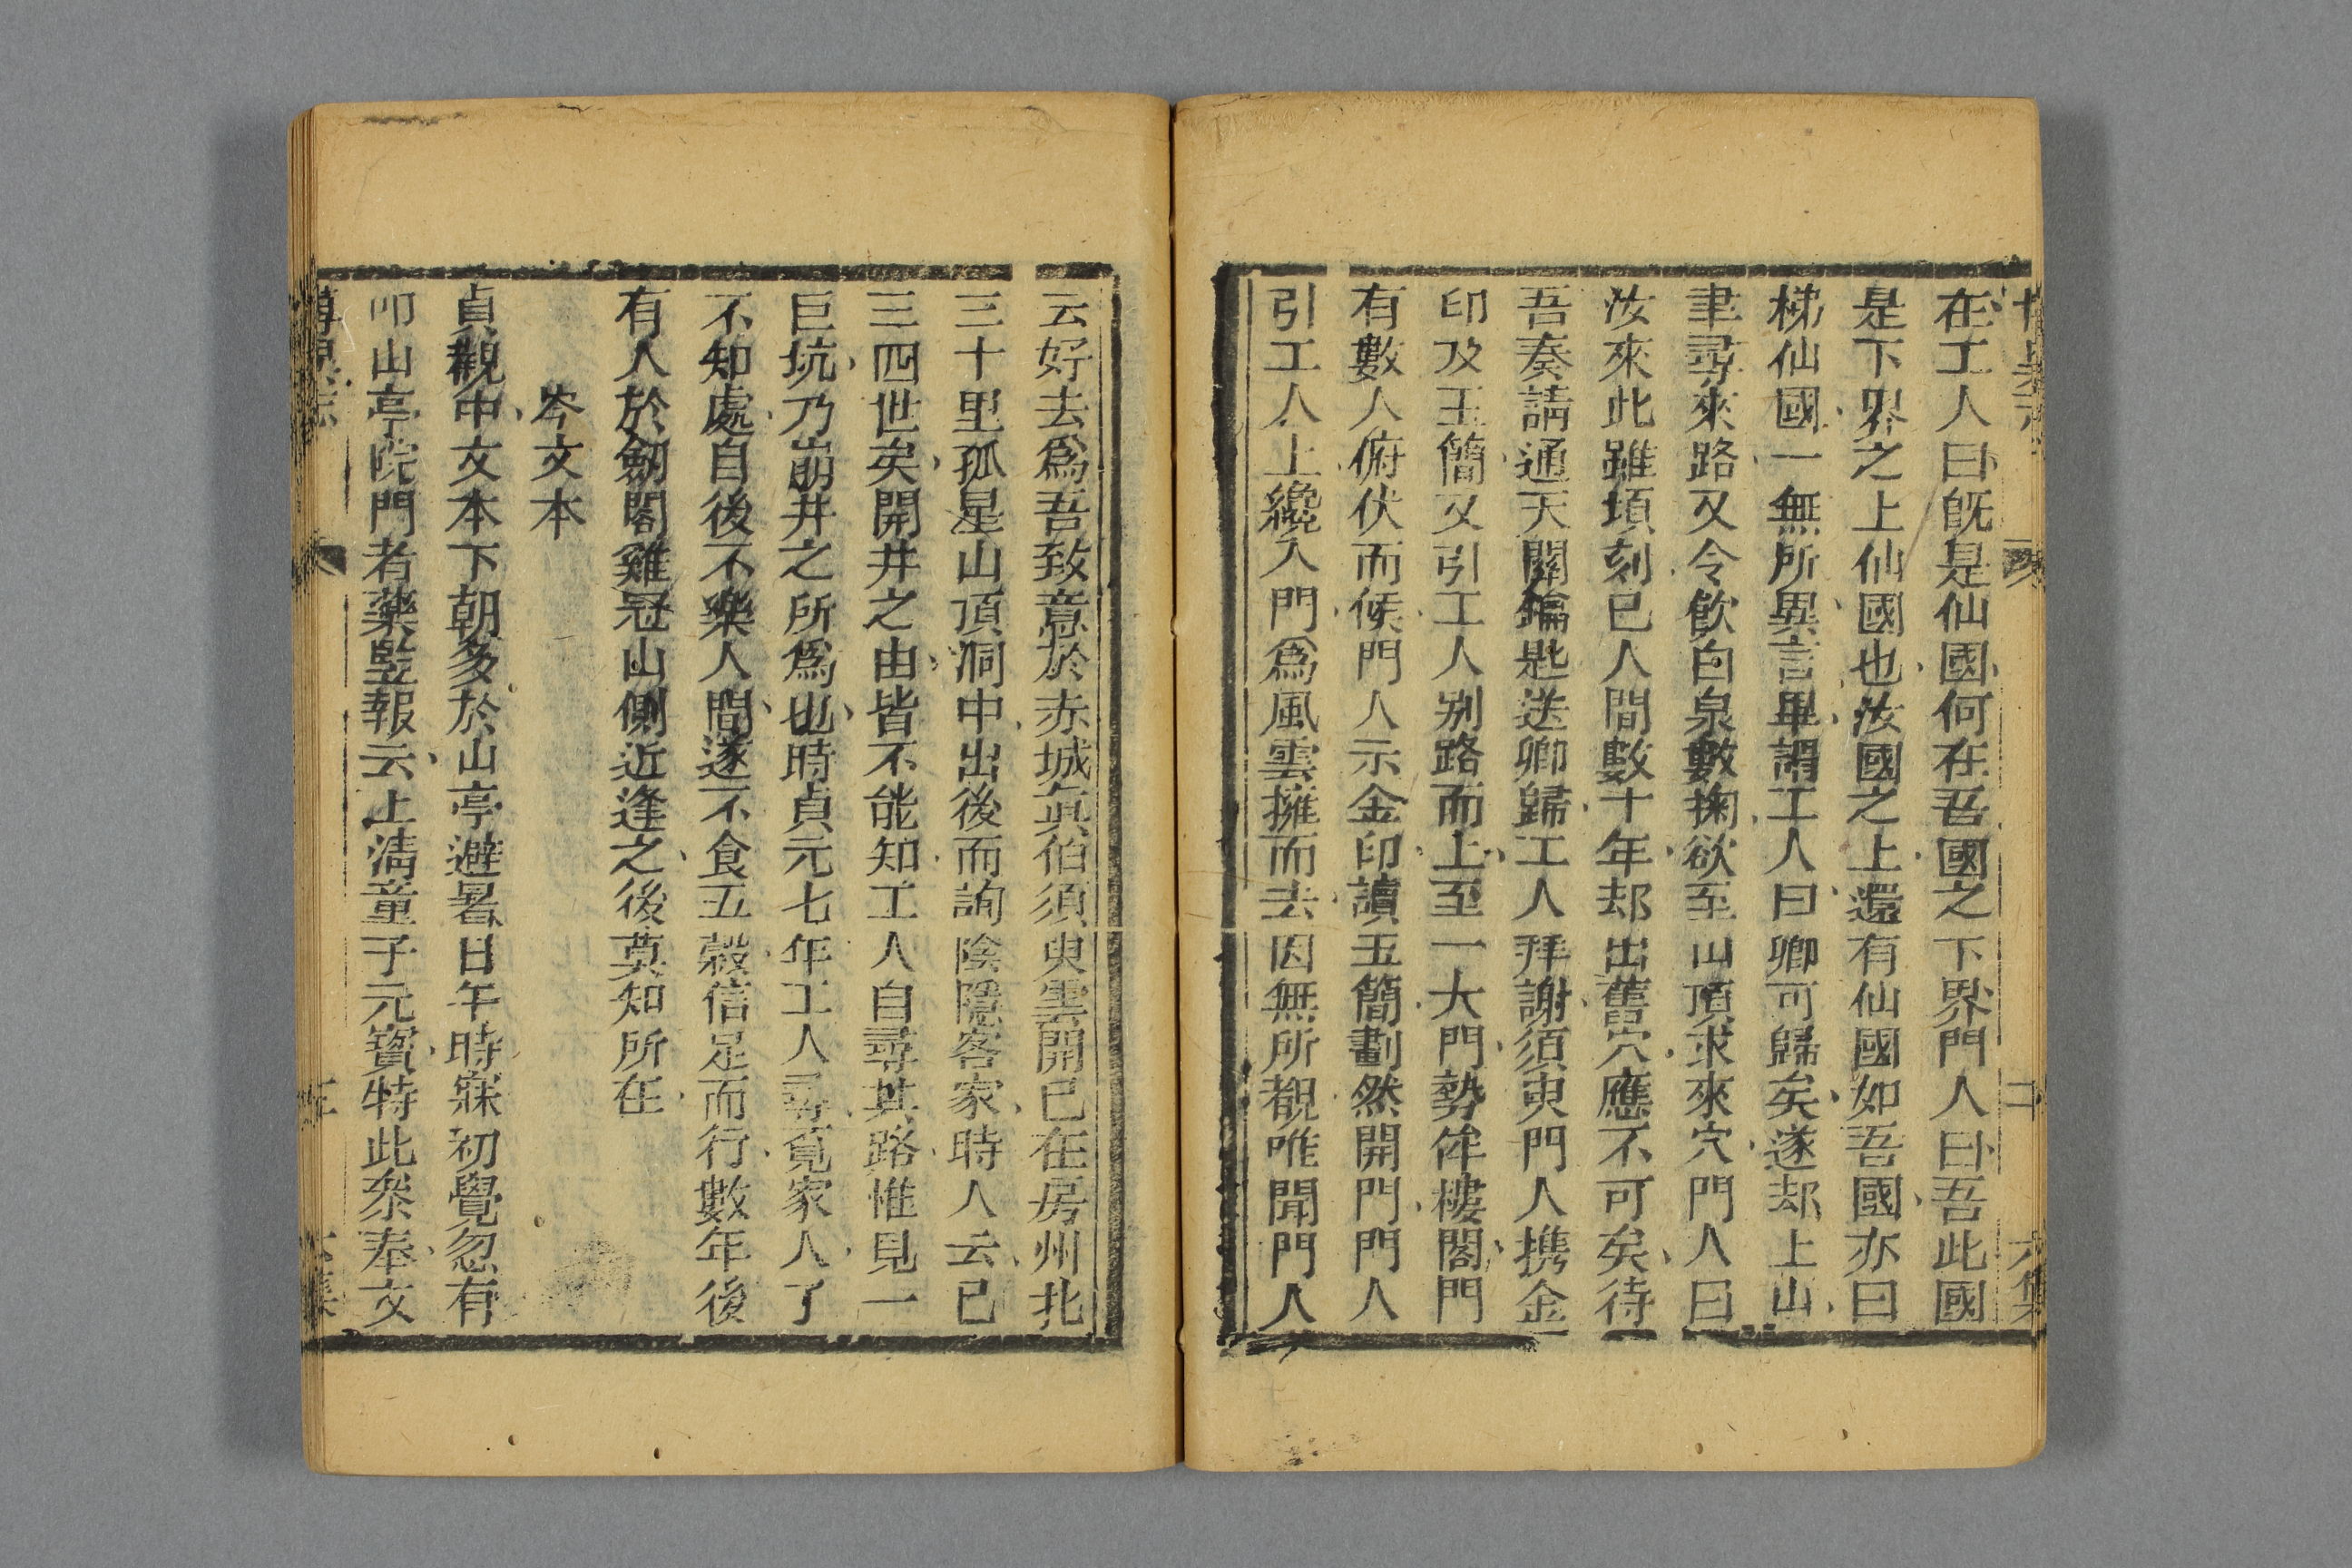 在工人曰旣是仙國何在吾國之下界門人曰吾此國
是下界之上仙國也汝國之上還有仙國如吾國亦曰
梯仙國一無所異言畢謂工人曰卿可歸矣遂却上山
尋來路又令飲白泉數掬欲至山頂求來穴門人曰
汝來此雖頃刻已人間數十年却出舊穴應不可矣待
吾奏請通天關鑰匙送卿歸工人拜謝須臾門人携金
印及玉簡又引工人别路而上至一大門勢侔樓閣門
有數人俯伏而候門人示金印讀玉簡劃然開門門人
引工人上纔入門爲風雲擁而去因無所覩唯聞門人
云好去爲吾致意於赤城貞伯須臾雲開已在房州北
三十里孤星山頂洞中出後而詢陰隱客家時人云已
三四世矣開井之由皆不能知工人自尋其路惟見一
巨坑乃崩井之所爲也時貞元七年工人尋覓家人了
不知處自後不樂人間遂不食五穀信足而行數年後
有人於劒閣雞冠山側近逢之後莫知所在
岑文本
貞觀中文本下朝多於山亭避暑日午時寐初覺忽有
叩山亭院門者藥竪報云上淸童子元寳特此叅奉文